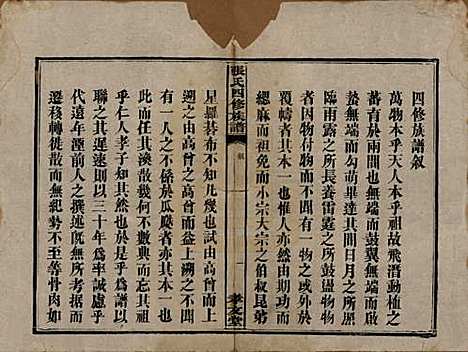 四修族譜敘
萬物本乎天人本乎祖故飛潛動植之
蕃育於兩間也無端而鼓翼無端而
蟄無端而勾萌畢達其間日月之所
臨雨露之所長養雷霆之所鼓盪帡
覆幬者其本一也惟人亦然由期功而
者因物付物而不聞有一物之或外於
緦麻而祖免而小宗大宗之伯叔昆弟
張氏四修族譜
敘
一
孝友堂
星羅碁布不知凡幾也試由高曾而上
溯之由高曾之高曾而益上溯之不聞
有一人之不係於瓜瓞者其本一也
此而任其渙散幾何不數典而
乎仁人孝子知其然也於是乎為譜以
聯之其遲速則以三十年為率誠慮乎
代遠年湮前人之撰述既無所考據而
遷移散佚而無紀勢不至等骨肉如